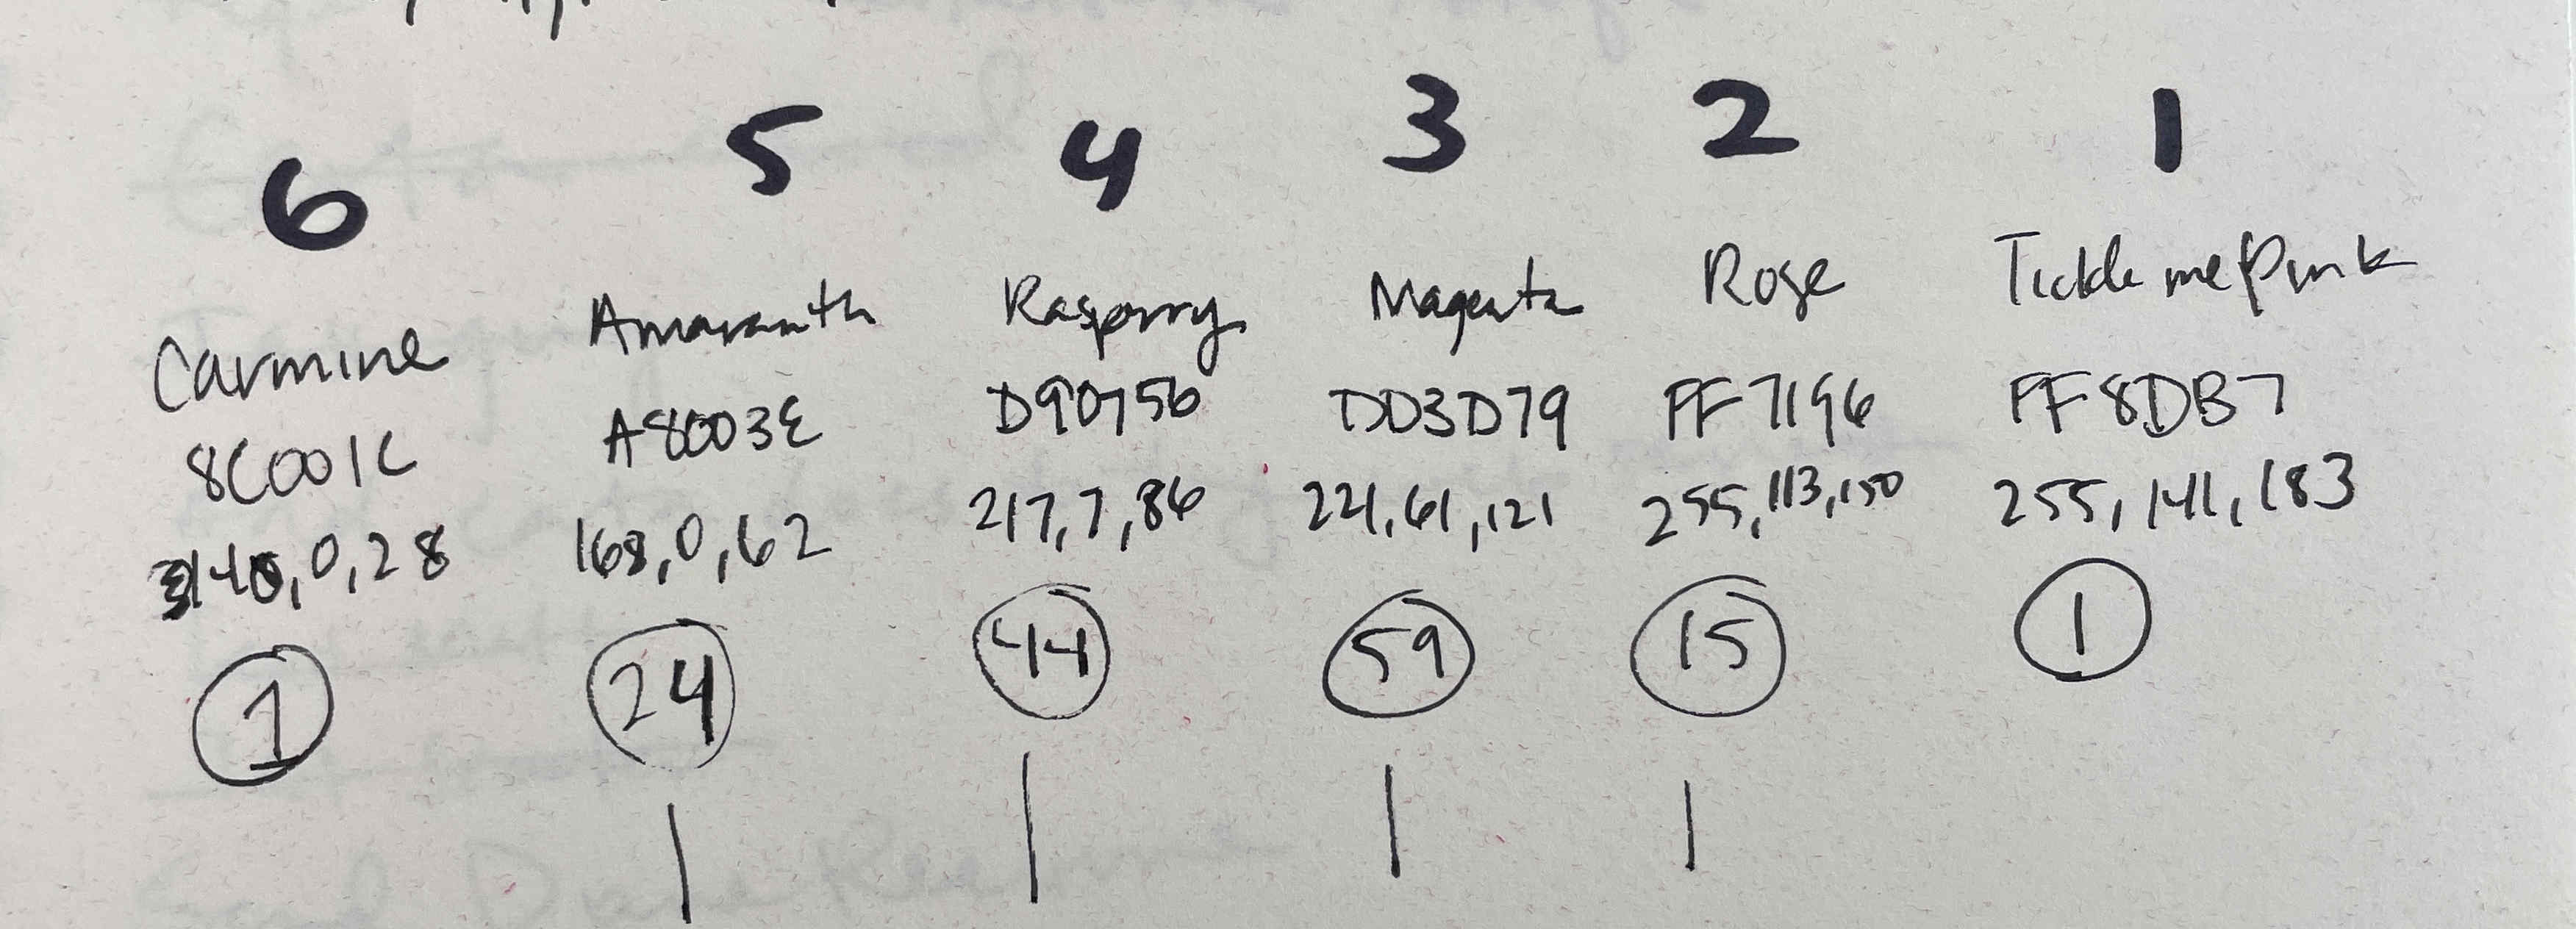 6 5 4 3 2 1
Carmine Amaranth Raspbrry Magenta Rose Tickle me Pink
8C001C A8003E D90756 DD3D79 FF7196 FF8DB7
140, 0, 28 168, 0, 62 217, 7, 86 221, 61, 121 255, 113, 150 255, 141, 183
1 24 44 59 15 1
| | | |